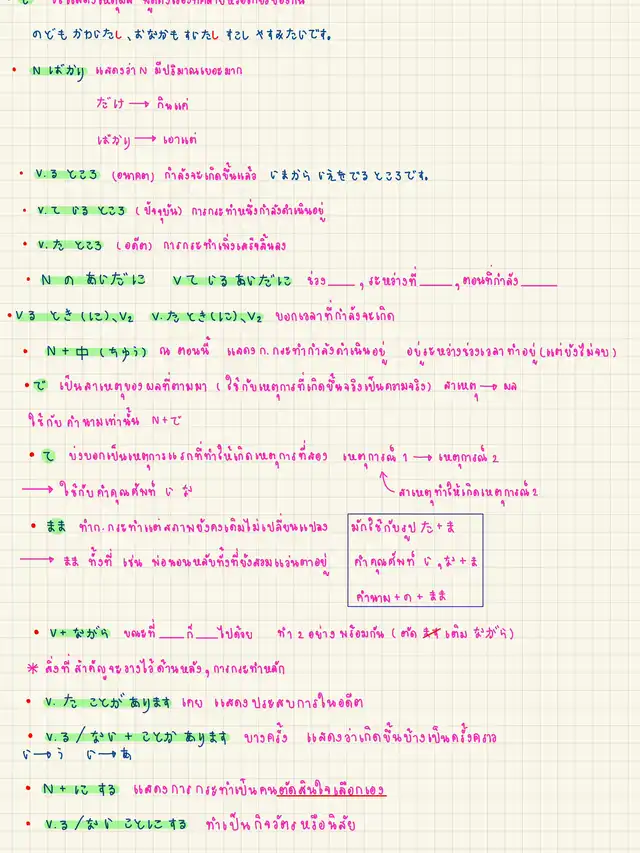 のども かわいたし、おなかも すいたし すこし やすみたいです。
• N ばかり แสดงว่า N มีปริมาณเยอะมาก
だけ → กินแค่
ばかり → เอาแต่
• V.る ところ (อนาคต) กำลังจะเกิดขึ้นแล้ว いまから いえをでるところです。
• V.て いる ところ (ปัจจุบัน) การกระทำหนึ่งกำลังดำเนินอยู่
• V.た ところ (อดีต) การกระทำเพิ่งเสร็จสิ้นลง
• N の あいだに Vて いるあいだに ช่วง ____ , ระหว่างที่ ____ , ตอนที่กำลัง ____
• Vる とき(に)、V2 V.た とき(に)、V2 บอกเวลาที่กำลังจะเกิด
• N + 中 (ちゅう) ณ ตอนนี้ แสดงก.กระทำกำลังดำเนินอยู่ อยู่ระหว่างช่วงเวลาทำอยู่ (แต่ยังไม่จบ)
• で เป็นสาเหตุของผลที่ตามมา ( ใช้กับเหตุการที่เกิดขึ้นจริงเป็นความจริง) สาเหตุ → ผล
ใช้กับ คำนามเท่านั้น N+で
• て บ่งบอกเป็นเหตุการแรกที่ทำให้เกิดเหตุการที่สอง เหตุการณ์ 1 → เหตุการณ์ 2
→ ใช้กับคำคุณศัพท์ い な สาเหตุทำให้เกิดเหตุการณ์2
• まま ทำก.กระทำแต่สภาพยังคงเดิมไม่เปลี่ยนแปลง มักใช้กับรูป た+ま
→ まま ทั้งที่ เช่น พ่อนอนหลับทั้งที่ยังสวมแว่นตาอยู่ คำคุณศัพท์ い ,な+ま
คำนาม + の + まま
• V+ ながら ขณะที่ ____ ก็ ____ ไปด้วย ทำ 2 อย่าง พร้อมกัน ( ตัด ます เติม ながら)
* สิ่งที่ สำคัญจะวางไว้ ด้านหลัง , การกระทำหลัก
• V. た ことが あります เคย แสดงประสบการในอดีต
• V.る / ない + ことが あります บางครั้ง แสดงว่าเกิดขึ้นบ้างเป็นครั้งคราว
い → う い → あ
• N + に する แสดงการ กระทำเป็นคนตัดสินใจเลือกเอง
• V.る / ない ことに する ทำเป็น กิจวัตร หรือนิสัย